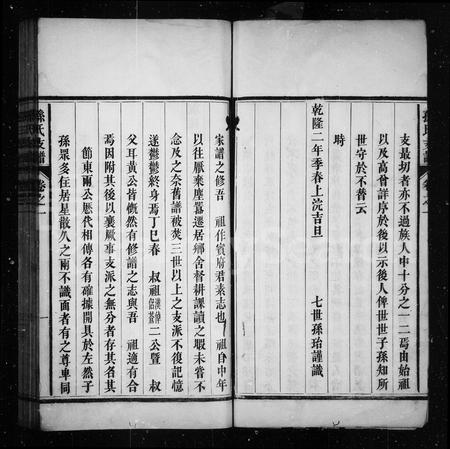 支最切者亦不過族人中十分之一二焉由始祖
以及高曾詳序於後以示後人俾世世子孫知所
世守於不替云
時
乾隆二年季春上浣吉旦
七世孫珆謹識
家譜之修吾 祖作賓府君素志也 祖自中年
以往厭棄塵囂還居鄉舍督耕課讀之暇未嘗不
念及之奈舊譜被焚三世以上之支派不復記憶
遂鬱鬱終身焉丁巳春 叔祖 二公暨 叔
父耳黃公皆慨然有修譜之志與吾 祖適有合
焉因附其後以襄厥事支派之無分者存其名其
節東兩公歷代相傳各有確據開具於左然子
孫眾多住居星散久之兩不識面者有之尊卑同
孫氏支譜
卷之一
一
孫氏支譜
卷之一